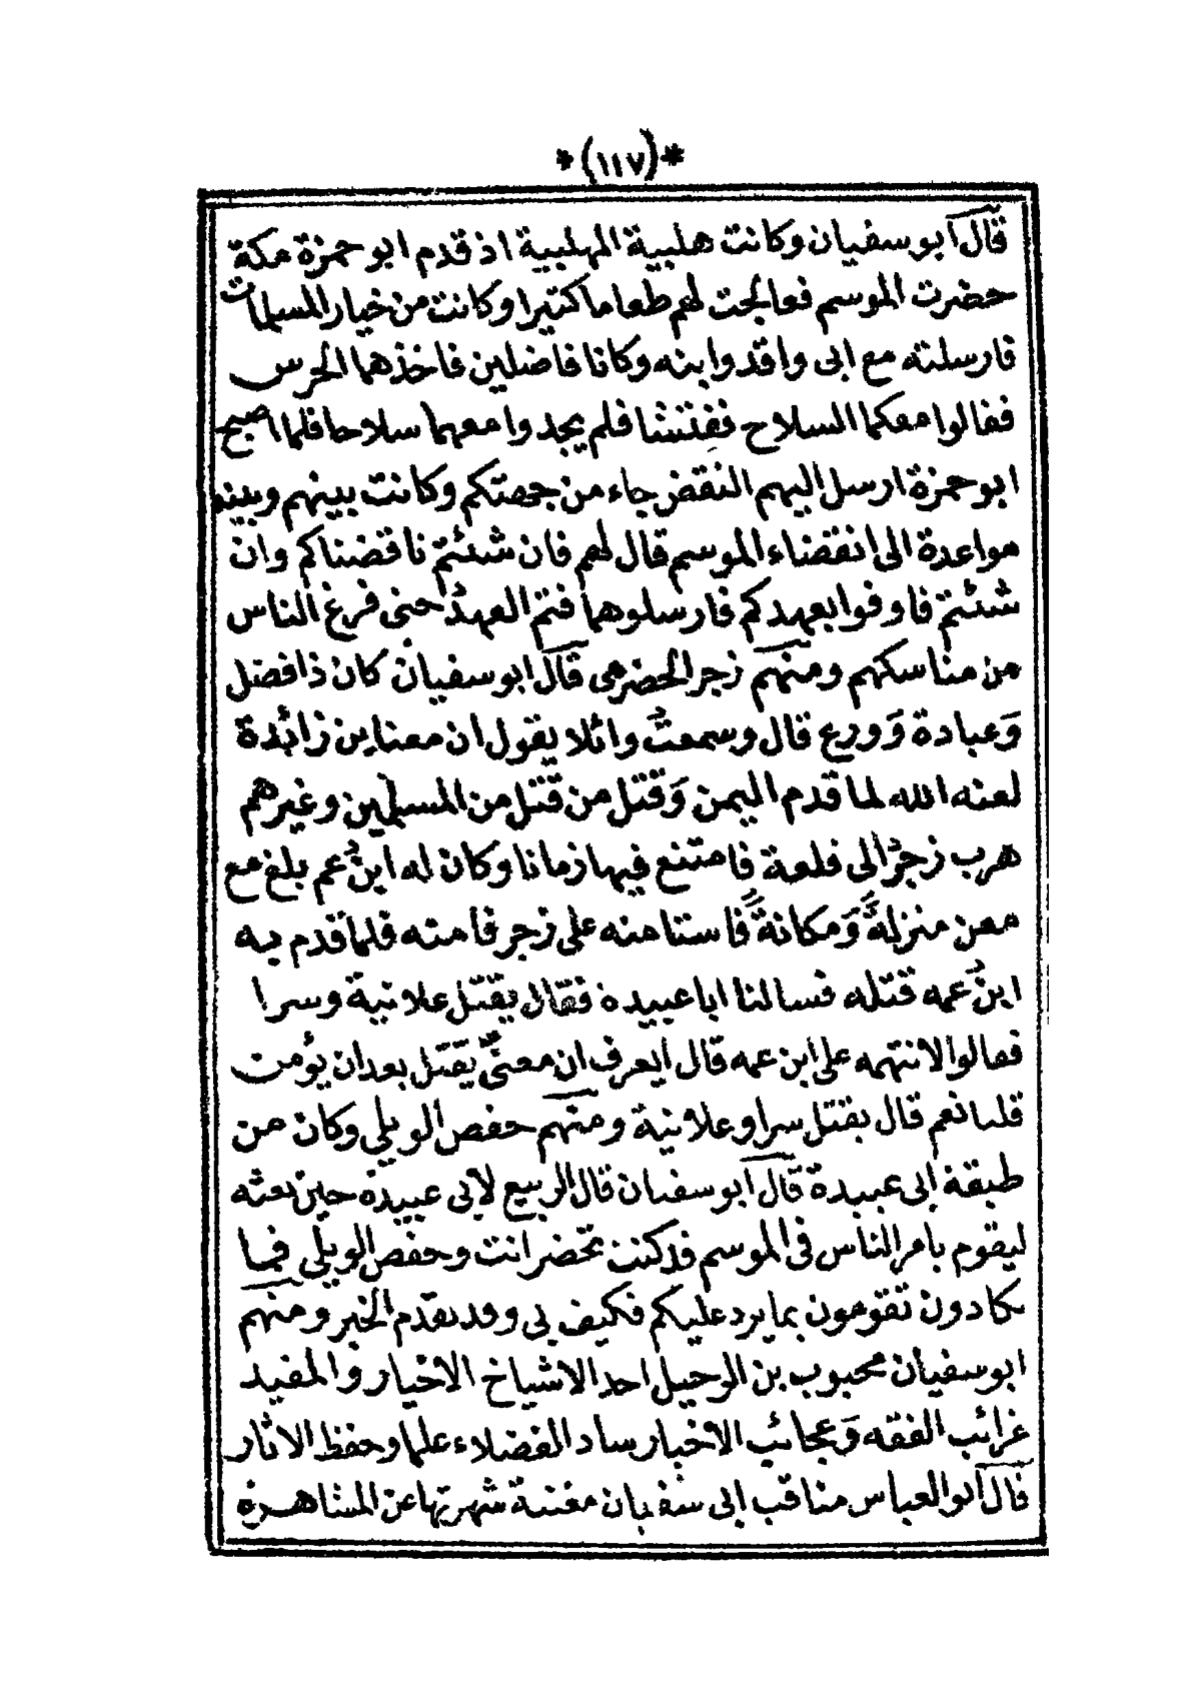 *(١١٧)*
قال ابو سفيان وكانت هلبية المهلبية اذ قدم ابو حمزة مكة
حضرت الموسم فعالجت لهم طعاما كثيرا وكانت من خيار المسلمات
فارسلته مع ابى واقد وابنه وكانا فاضلين فاخذهما الحرس
فقالوا معكما السلاح ففتشا فلم يجدوا معهما سلاحا فلما اصبح
ابو حمزة ارسل اليهم النقض جاء من جهتكم وكانت بينهم وبينه
مواعدة الى انقضاء الموسم قال لهم فان شئتم ناقضناكم وان
شئتم فاوفوا بعهدكم فارسلوهما فتم العهد حتى فرغ الناس
من مناسكهم ومنهم زجر الحضرمى قال ابو سفيان كان ذا فضل
وَعبادة وَورع قال وسمعت وائلا يقول ان معنا بن زائدة
لعنه الله لما قدم اليمن وَقتل من قتل من المسلمين وغيرهم
هرب زجر الى قلعة فامتنع فيها زمانا وكان له ابن عم بلغ مع
معن منزلة وَمكانة فاستامنه على زجر فأمنه فلما قدم به
ابن عمه قتله فسالنا ابا عبيدة فقال يقتل علانية وسرا
فقالوا لا نتهمه على ابن عمه قال ايعرف ان معنى يقتل بعد ان يؤمن
قلنا نعم قال يقتل سرا وعلانية ومنهم حفص الويلى وكان من
طبقة ابى عبيدة قال ابو سفيان قال الربيع لابى عبيدة حين بعثه
ليقوم بامر الناس فى الموسم قد كنت تحضر انت وحفص الويلى فما
تكادون تقومون بما يرد عليكم فكيف بى وقد تقدم الخبر ومنهم
ابو سفيان محبوب بن الرحيل احد الاشياخ الاخيار والمفيد
غرائب الفقه وَعجائب الاخبار ساد الفضلاء علما وحفظ الاثار
قال ابو العباس مناقب ابى سفيان مغنية شهرتها عن المشاهرة